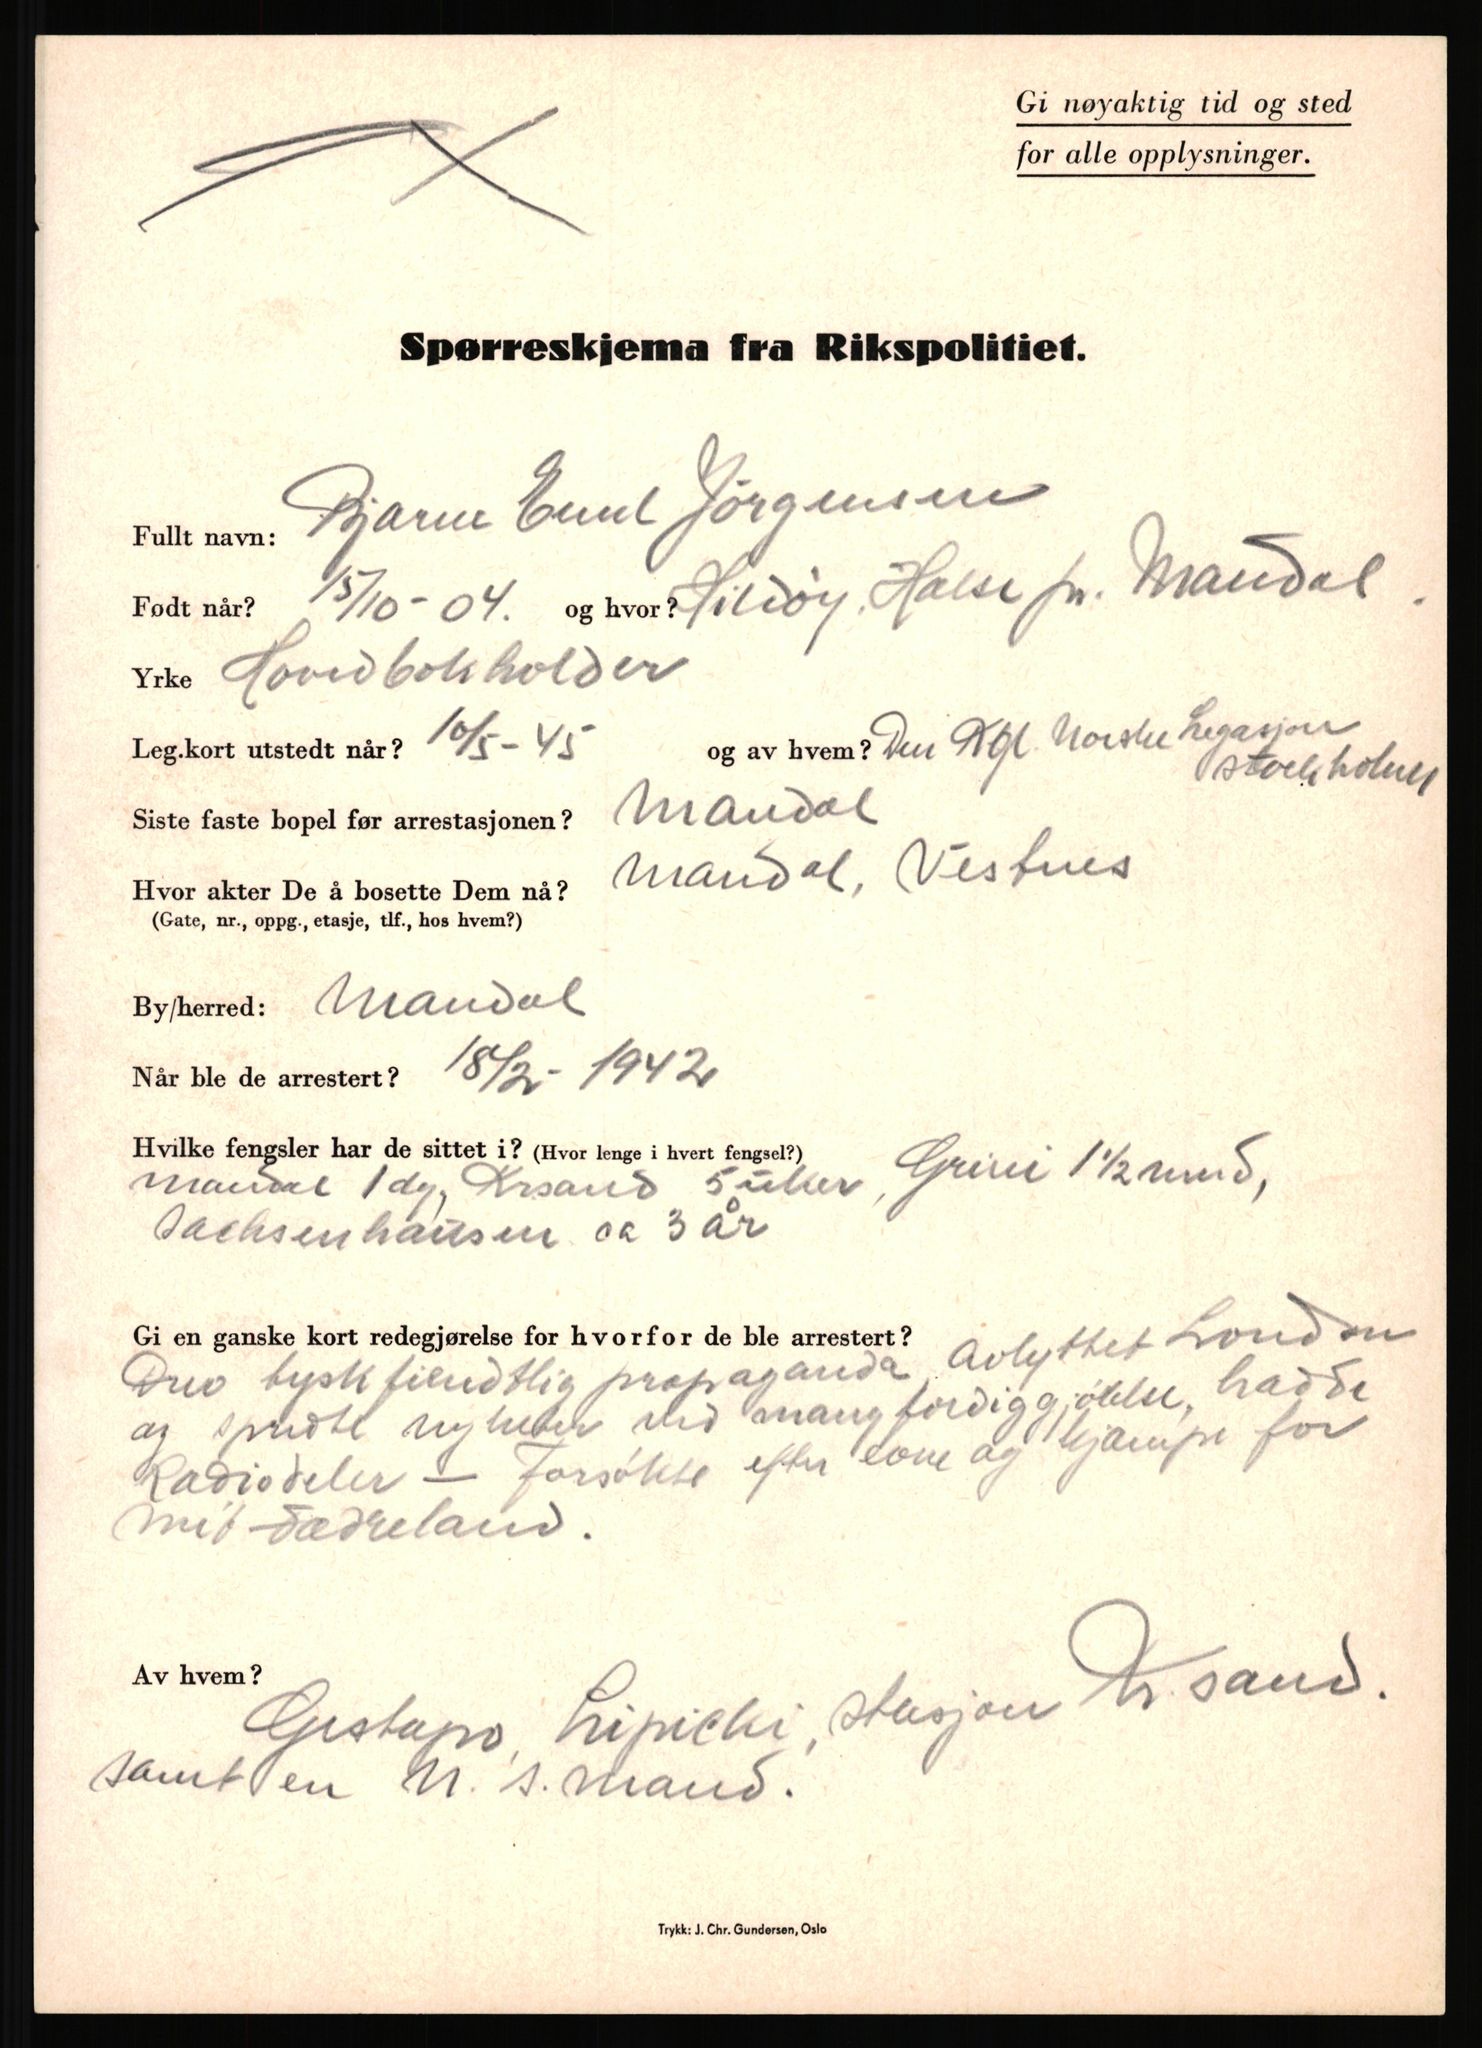 Gi nøyaktig tid og sted
for alle opplysninger.
Spørreskjema fra Rikspolitiet.
Fullt navn: Bjarne Emil Jörgensen
Født når? 15/10-04. og hvor? Hilløy, Halse pr. Mandal.
Yrke Hovedbokholder
Leg.kort utstedt når? 10/5-45 og av hvem? Den Kgl. Norske Legasjon
Stockholm
Siste faste bopel før arrestasjonen? Mandal
Hvor akter De å bosette Dem nå? Mandal, Vestnes
(Gate, nr., oppg., etasje, tlf., hos hvem?)
By/herred: Mandal
Når ble de arrestert? 18/2-1942
Hvilke fengsler har de sittet i? (Hvor lenge i hvert fengsel?)
Mandal 1 dg, Krsand 5 uker, Grini 1 1/2 mnd,
Sachsenhausen ca 3 år
Gi en ganske kort redegjørelse for hvorfor de ble arrestert?
Drev tyskfiendtlig propaganda, avlyttet London
og spredte nyheter ved mangfordiggjölelse, hadde
Radiodeler — Forsökte efter evne og kjæmpe for
mit fædreland.
Av hvem?
Gestapo, Lipicki, stasjon Kr.sand.
samt en N.S. mand.
Trykk: J. Chr. Gundersen, Oslo